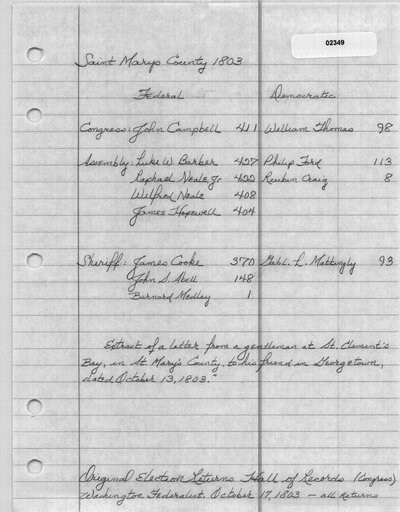 02349
Saint Marys County 1803
Federal Democratic
Congress: John Campbell 411 William Thomas 98
Assembly: Luke W. Barber 427 Philip Ford 113
Raphael Neale, Jr 422 Reubin Craig 8
Wilfred Neale 408
James Hopewell 404
Sheriff: James Cooke 370 Gabl. L. Mattingly 93
John S. Abell 148
Bernard Medley 1
Extract of a letter from a gentleman at St. Clement's
Bay, in St. Mary's County, to his friend in Georgetown,
dated October 13, 1803."
Original Election Returns. Hall of Records (Congress)
Washington Federalist. October 17, 1803 — all returns